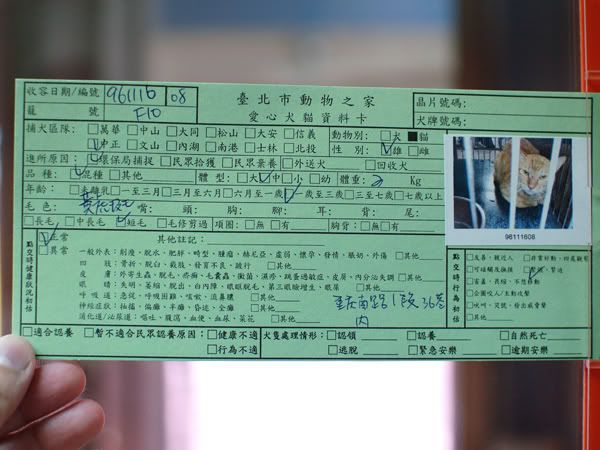 收容日期/編號 961116 08
籠 號 F10
臺北市動物之家
愛心犬貓資料卡
晶片號碼:
犬牌號碼:
捕犬區隊: □萬華 □中山 □大同 □松山 □大安 □信義 動物別: □犬 ■貓
□中正 □文山 □內湖 □南港 □士林 □北投 性 別: □雄 □雌
進所原因: □環保局捕捉 □民眾拾獲 □民眾棄養 □外送犬 □回收犬
品種: □混種 □其他 體 型: □大 □中 □小 □幼 體重: 2 Kg
年齡: □未離乳 □一至三月 □三月至六月 □六月至一歲 □一歲至三歲 □三歲至七歲 □七歲以上
毛 色: 黃虎斑 嘴: 頭: 胸: 腳: 耳: 背: 尾:
□長毛 □中長毛 □短毛 □毛修剪過 項圈: □無 □有 胸背: □無 □有
點交時健康狀況初估
□正常
□異常
其他註記:
一般外表: 削瘦、脫水、肥胖、畸型、腫瘤、赫尼亞、虛弱、懷孕、發情、脹奶、外傷 □其他
四 肢: 骨折、脫臼、截肢、發育不良、跛行 □其他
皮 膚: 外寄生蟲、脫毛、疥癬、毛囊蟲、黴菌、濕疹、跳蚤過敏症、皮屑、內分泌失調 □其他
眼 睛: 失明、萎縮、脫出、白內障、眼瞼脫毛、第三眼瞼增生、眼屎 □其他
呼 吸 道: 急促、呼吸困難、咳嗽、流鼻膿 □其他
神經症狀: 抽搐、偏癱、半癱、昏迷、全癱 □其他
消化道/泌尿道: 嘔吐、腹瀉、血便、血尿、菜花 □其他
重慶南路1段36巷
內
98111608
點交時行為初估
□友善、親近人 □非常好動、四處觀看
□可碰觸及撫摸 □緊張、緊迫
□害羞、畏縮、不想移動
□企圖咬人/主動攻擊
□吠叫、哭號、發出威脅聲
□其他
□適合認養 □暫不適合民眾認養原因: □健康不適 犬隻處理情形: □認領 □認養 □自然死亡
□行為不適 □逃脫 □緊急安樂 □逾期安樂